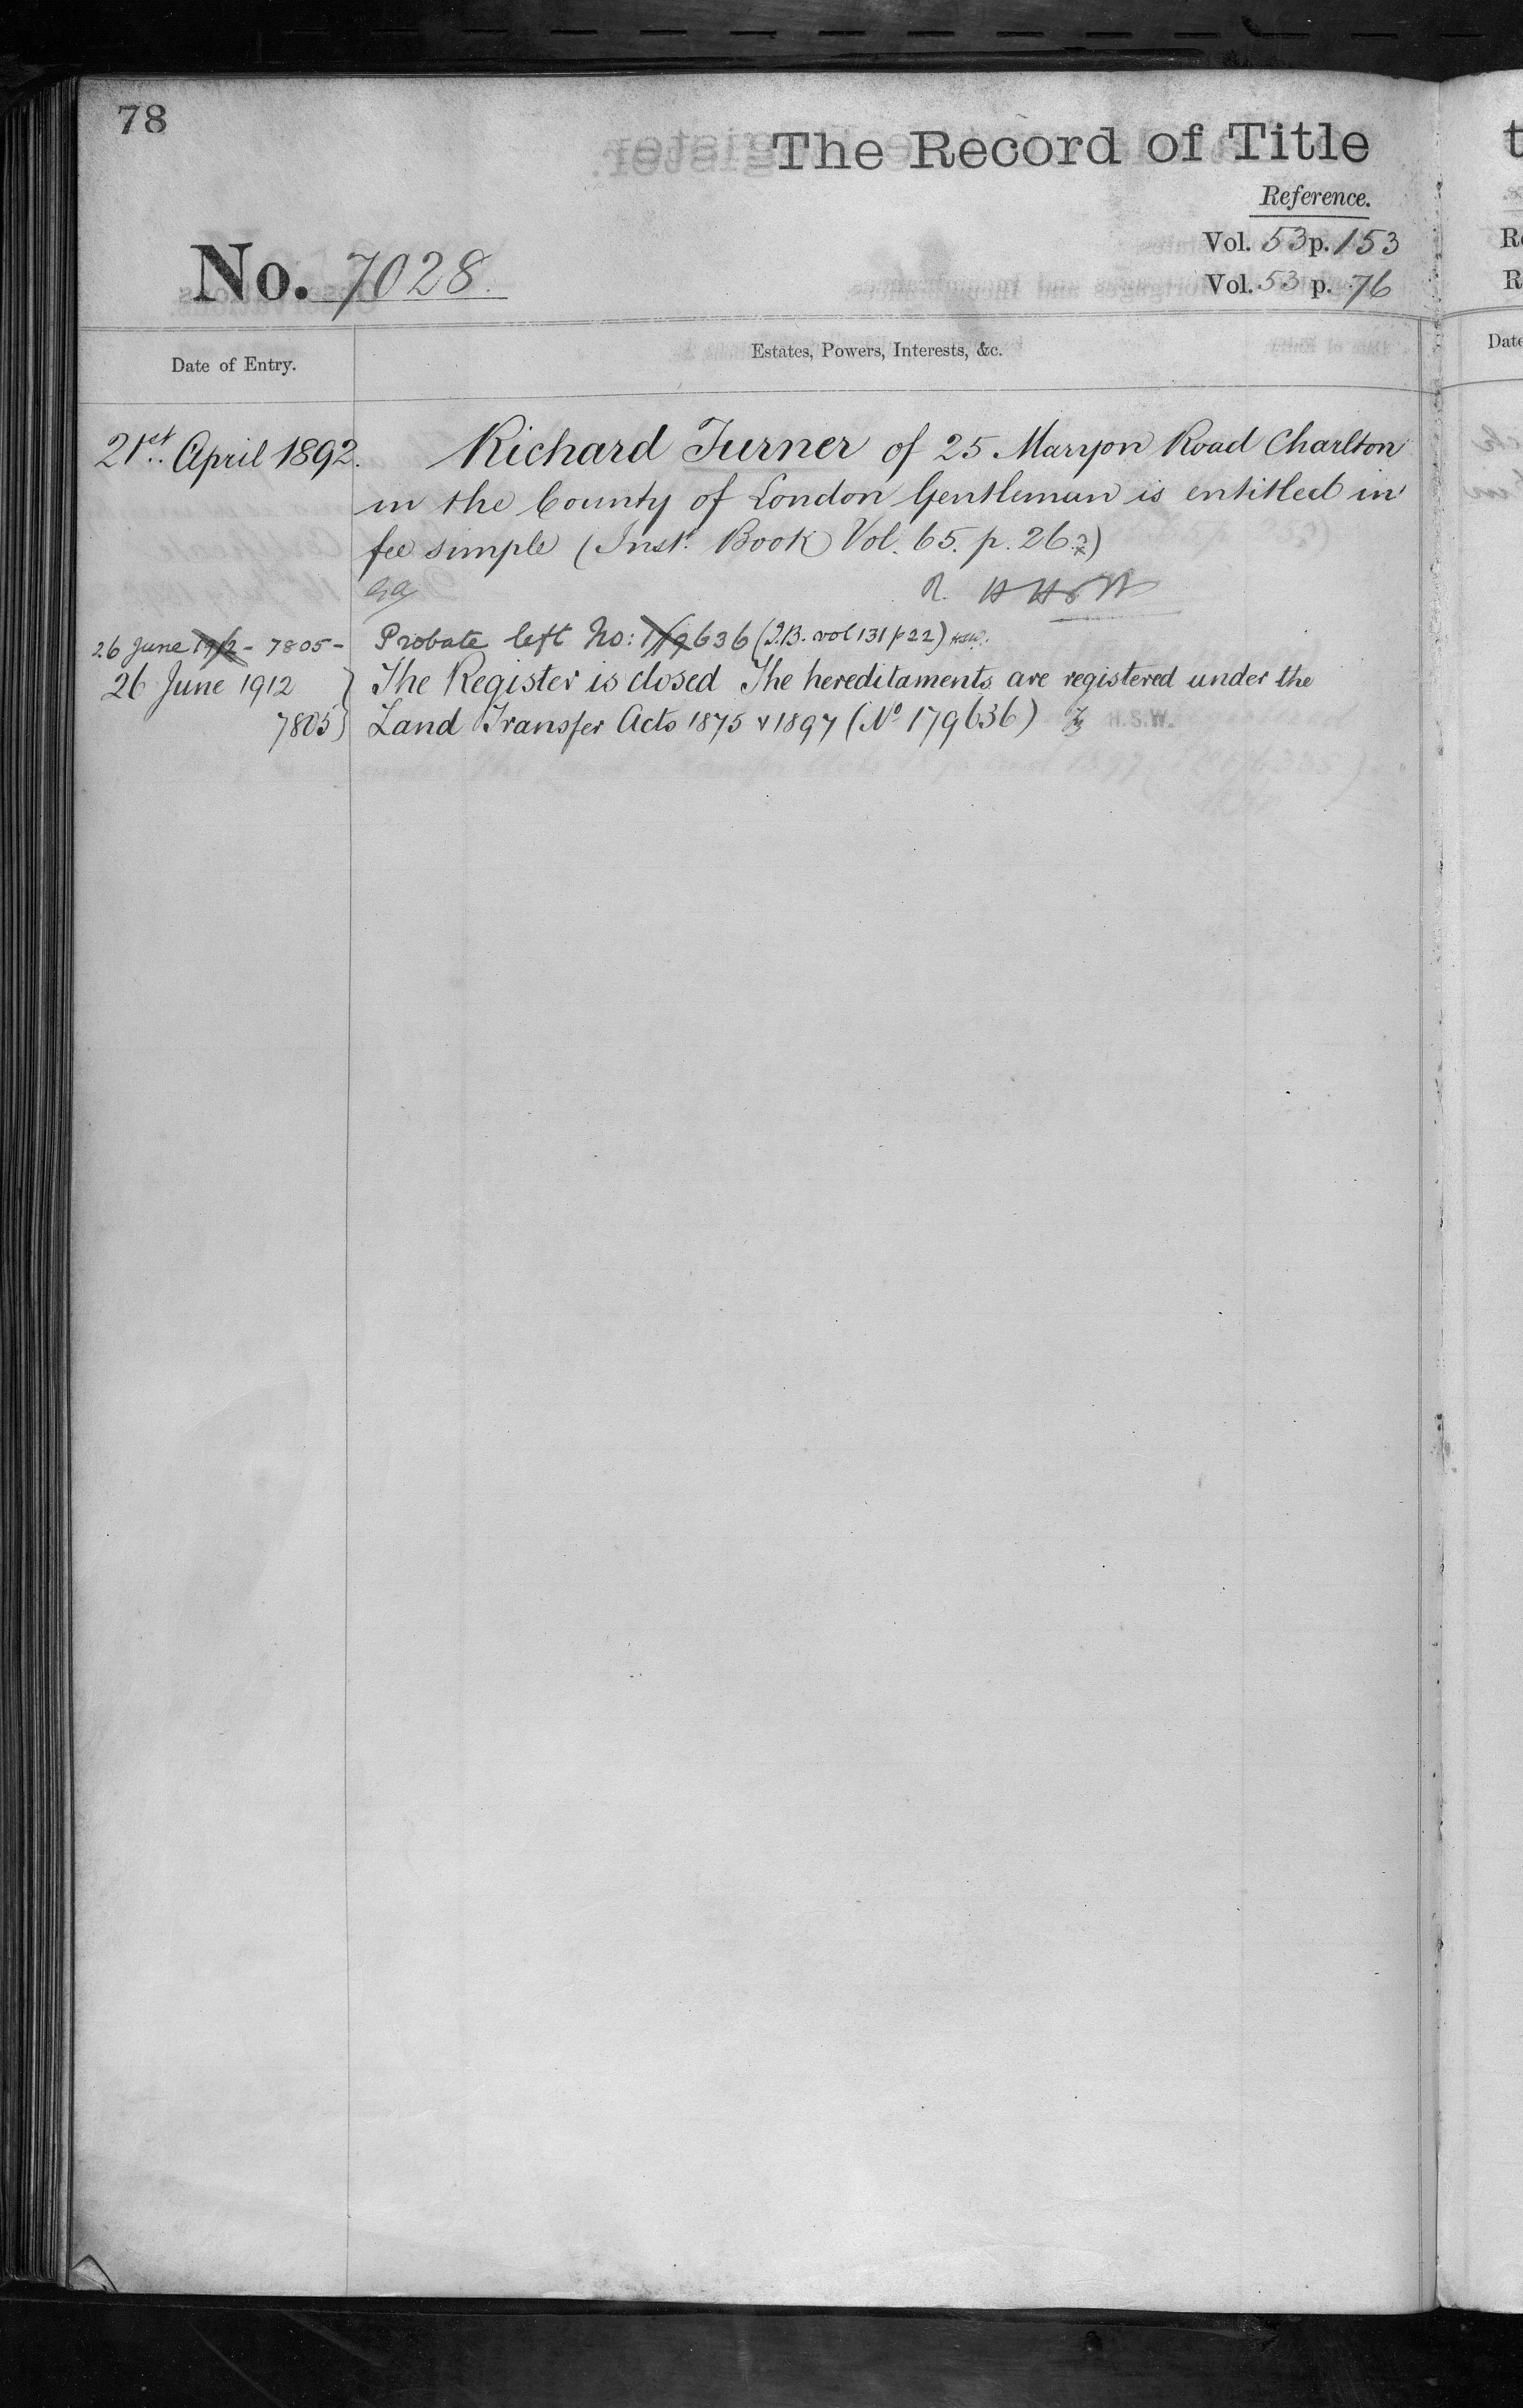 78
The Record of Title
Reference.
Vol. 53 p. 153
No. 7028.
Vol. 53 p. 76
Date of Entry.
Estates, Powers, Interests, &c.
21st. April 1892.
Richard Turner of 25 Maryon Road Charlton
in the County of London Gentleman is entitled in
fee simple (Inst. Book Vol. 65. p. 26
26 June 1912 - 7805 - Probate left No: 636 (I.B. vol 131 p 22) HSW.
26 June 1912 } The Register is closed The hereditaments are registered under the
7805 } Land Transfer Acts 1875 & 1897 (No 179636) H.S.W.
Date